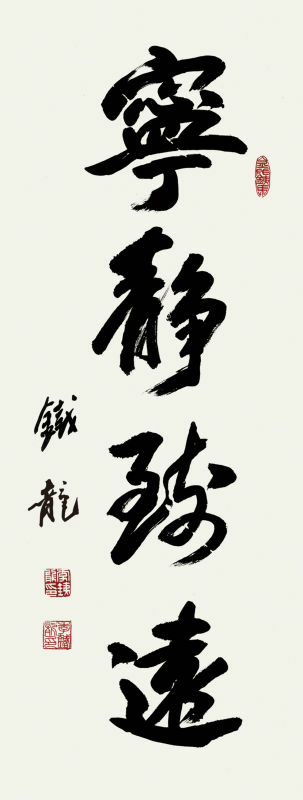 寧靜致遠
鐵龍